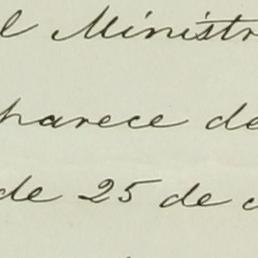 l Ministr
parece de
de 25 de